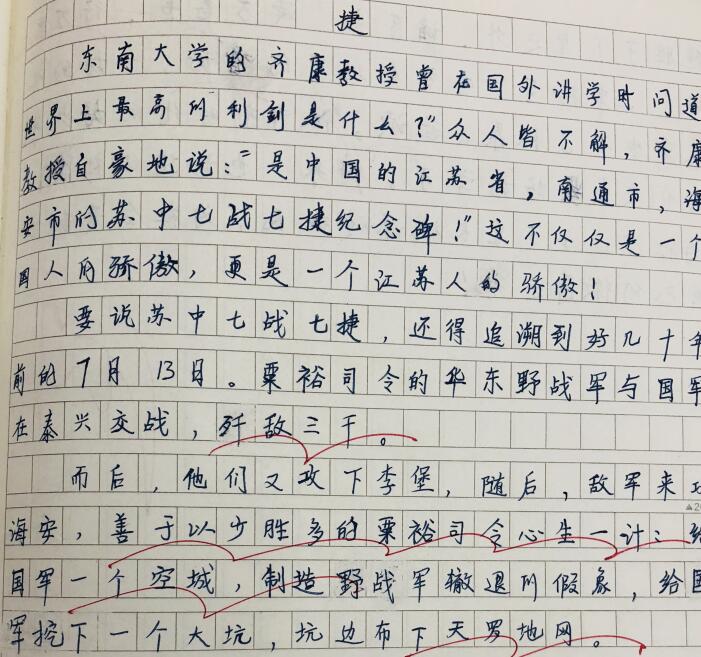 捷
东南大学的齐康教授曾在国外讲学时问道
世界上最高的利剑是什么?”众人皆不解,齐康
教授自豪地说:“是中国的江苏省,南通市,海
安市的苏中七战七捷纪念碑!”这不仅仅是一个
国人的骄傲,更是一个江苏人的骄傲!
要说苏中七战七捷,还得追溯到好几十年
前的7月13日。粟裕司令的华东野战军与国军
在泰兴交战,歼敌三千。
而后,他们又攻下李堡,随后,敌军来攻
海安,善于以少胜多的粟裕司令心生一计:给
国军一个空城,制造野战军辙退的假象,给国
军挖下一个大坑,坑边布下天罗地网。